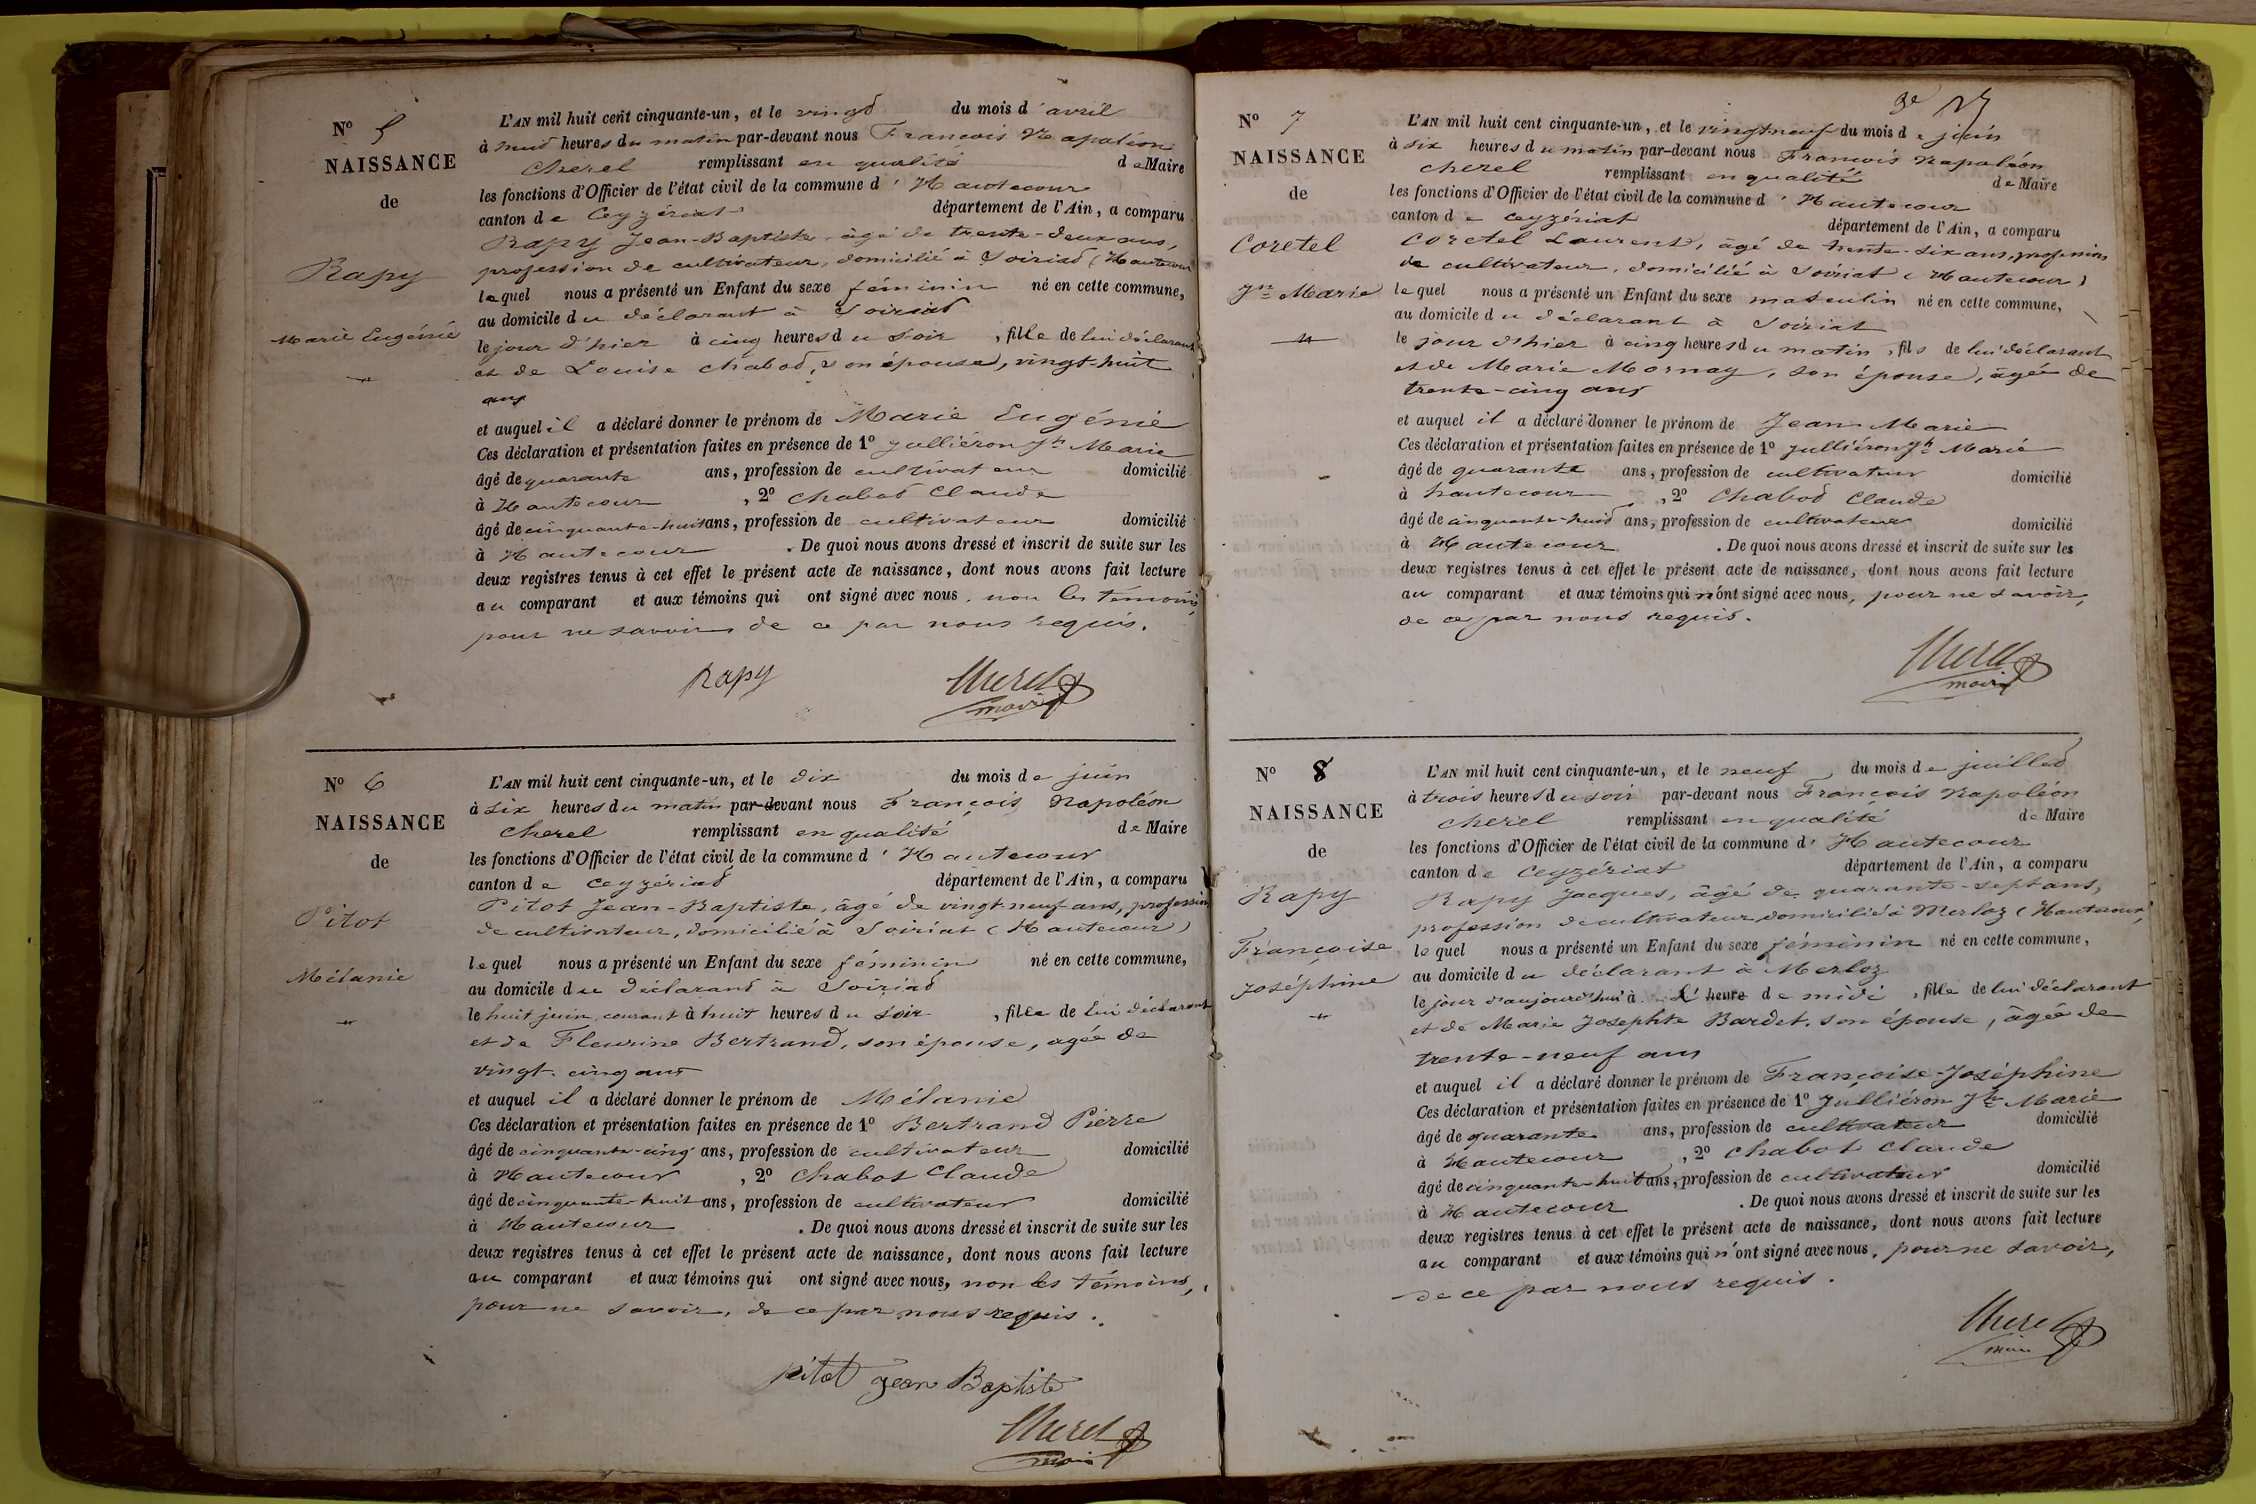 N° 5
NAISSANCE
de
Rapy
Marie Eugénie
L'AN mil huit cent cinquante-un, et le vingt du mois d'avril
à huit heures du matin par-devant nous François Napoléon
Cherel remplissant en qualité de Maire
les fonctions d'Officier de l'état civil de la commune d'Hautecour
canton de Ceyzériat département de l'Ain, a comparu
Rapy Jean-Baptiste âgé de trente-deux ans,
profession de cultivateur, domicilié à Soiriat (Hautecour
lequel nous a présenté un Enfant du sexe féminin né en cette commune,
au domicile du déclarant à Soiriat
le jour d'hier à cinq heures du soir, fille de lui déclarant
et de Louise Chabod, son épouse, vingt-huit
ans
et auquel il a déclaré donner le prénom de Marie Eugénie
Ces déclaration et présentation faites en présence de 1° Julliéron Jh Marie
âgé de quarante ans, profession de cultivateur domicilié
à Hautecour, 2° Chabod Claude
âgé de cinquante-huit ans, profession de cultivateur domicilié
à Hautecour. De quoi nous avons dressé et inscrit de suite sur les
deux registres tenus à cet effet le présent acte de naissance, dont nous avons fait lecture
au comparant et aux témoins qui ont signé avec nous, non les témoins,
pour ne savoir, de ce par nous requis.
Rapy Cherel
maire
N° 6
NAISSANCE
de
Pitot
Mélanie
L'AN mil huit cent cinquante-un, et le dix du mois de juin
à six heures du matin par-devant nous François Napoléon
Cherel remplissant en qualité de Maire
les fonctions d'Officier de l'état civil de la commune d'Hautecour
canton de Ceyzériat département de l'Ain, a comparu
Pitot Jean-Baptiste, âgé de vingt-neuf ans, profession
de cultivateur, domicilié à Soiriat (Hautecour)
lequel nous a présenté un Enfant du sexe féminin né en cette commune,
au domicile du déclarant à Soiriat
le huit juin courant à huit heures du soir, fille de lui déclarant
et de Fleurine Bertrand, son épouse, agée de
vingt-cinq ans
et auquel il a déclaré donner le prénom de Mélanie
Ces déclaration et présentation faites en présence de 1° Bertrand Pierre
âgé de cinquante-cinq ans, profession de cultivateur domicilié
à Hautecour, 2° Chabot Claude
âgé de cinquante-huit ans, profession de cultivateur domicilié
à Hautecour. De quoi nous avons dressé et inscrit de suite sur les
deux registres tenus à cet effet le présent acte de naissance, dont nous avons fait lecture
au comparant et aux témoins qui ont signé avec nous, non les témoins,
pour ne savoir, de ce par nous requis.
pitot Jean Baptiste
Cherel
maire
N° 7
NAISSANCE
de
Coretel
Jn Marie
L'AN mil huit cent cinquante-un, et le vingt neuf du mois de juin
à six heures du matin par-devant nous François Napoléon
Cherel remplissant en qualité de Maire
les fonctions d'Officier de l'état civil de la commune d'Hautecour
canton de Ceyzériat département de l'Ain, a comparu
Coretel Laurent, âgé de trente-six ans, profession
de cultivateur, domicilié à Soiriat (Hautecour)
lequel nous a présenté un Enfant du sexe masculin né en cette commune,
au domicile du déclarant à Soiriat
le jour d'hier à cinq heures du matin, fils de lui déclarant
et de Marie Mornay, son épouse, âgée de
trente-cinq ans
et auquel il a déclaré donner le prénom de Jean Marie
Ces déclaration et présentation faites en présence de 1° Julliéron Jh Marie
âgé de quarante ans, profession de cultivateur domicilié
à hautecour, 2° Chabod Claude
âgé de cinquante-huit ans, profession de cultivateur domicilié
à Hautecour. De quoi nous avons dressé et inscrit de suite sur les
deux registres tenus à cet effet le présent acte de naissance, dont nous avons fait lecture
au comparant et aux témoins qui n'ont signé avec nous, pour ne savoir,
de ce par nous requis.
Cherel
maire
N° 8
NAISSANCE
de
Rapy
Françoise
Joséphine
L'AN mil huit cent cinquante-un, et le neuf du mois de juillet
à trois heures du soir par-devant nous François Napoléon
Cherel remplissant en qualité de Maire
les fonctions d'Officier de l'état civil de la commune d'Hautecour
canton de Ceyzériat département de l'Ain, a comparu
Rapy Jacques, âgé de quarante-sept ans,
profession de cultivateur, domicilié à Merloz (Hautecour)
lequel nous a présenté un Enfant du sexe féminin né en cette commune,
au domicile du déclarant à Merloz
le jour d'aujourd'hui à l'heure de midi, fille de lui déclarant
et de Marie Josephte Bardet, son épouse, âgée de
trente-neuf ans
et auquel il a déclaré donner le prénom de Françoise-Joséphine
Ces déclaration et présentation faites en présence de 1° Julliéron Jh Marie
âgé de quarante ans, profession de cultivateur domicilié
à Hautecour, 2° Chabot Claude
âgé de cinquante-huit ans, profession de cultivateur domicilié
à Hautecour. De quoi nous avons dressé et inscrit de suite sur les
deux registres tenus à cet effet le présent acte de naissance, dont nous avons fait lecture
au comparant et aux témoins qui n'ont signé avec nous, pour ne savoir,
de ce par nous requis.
Cherel
maire